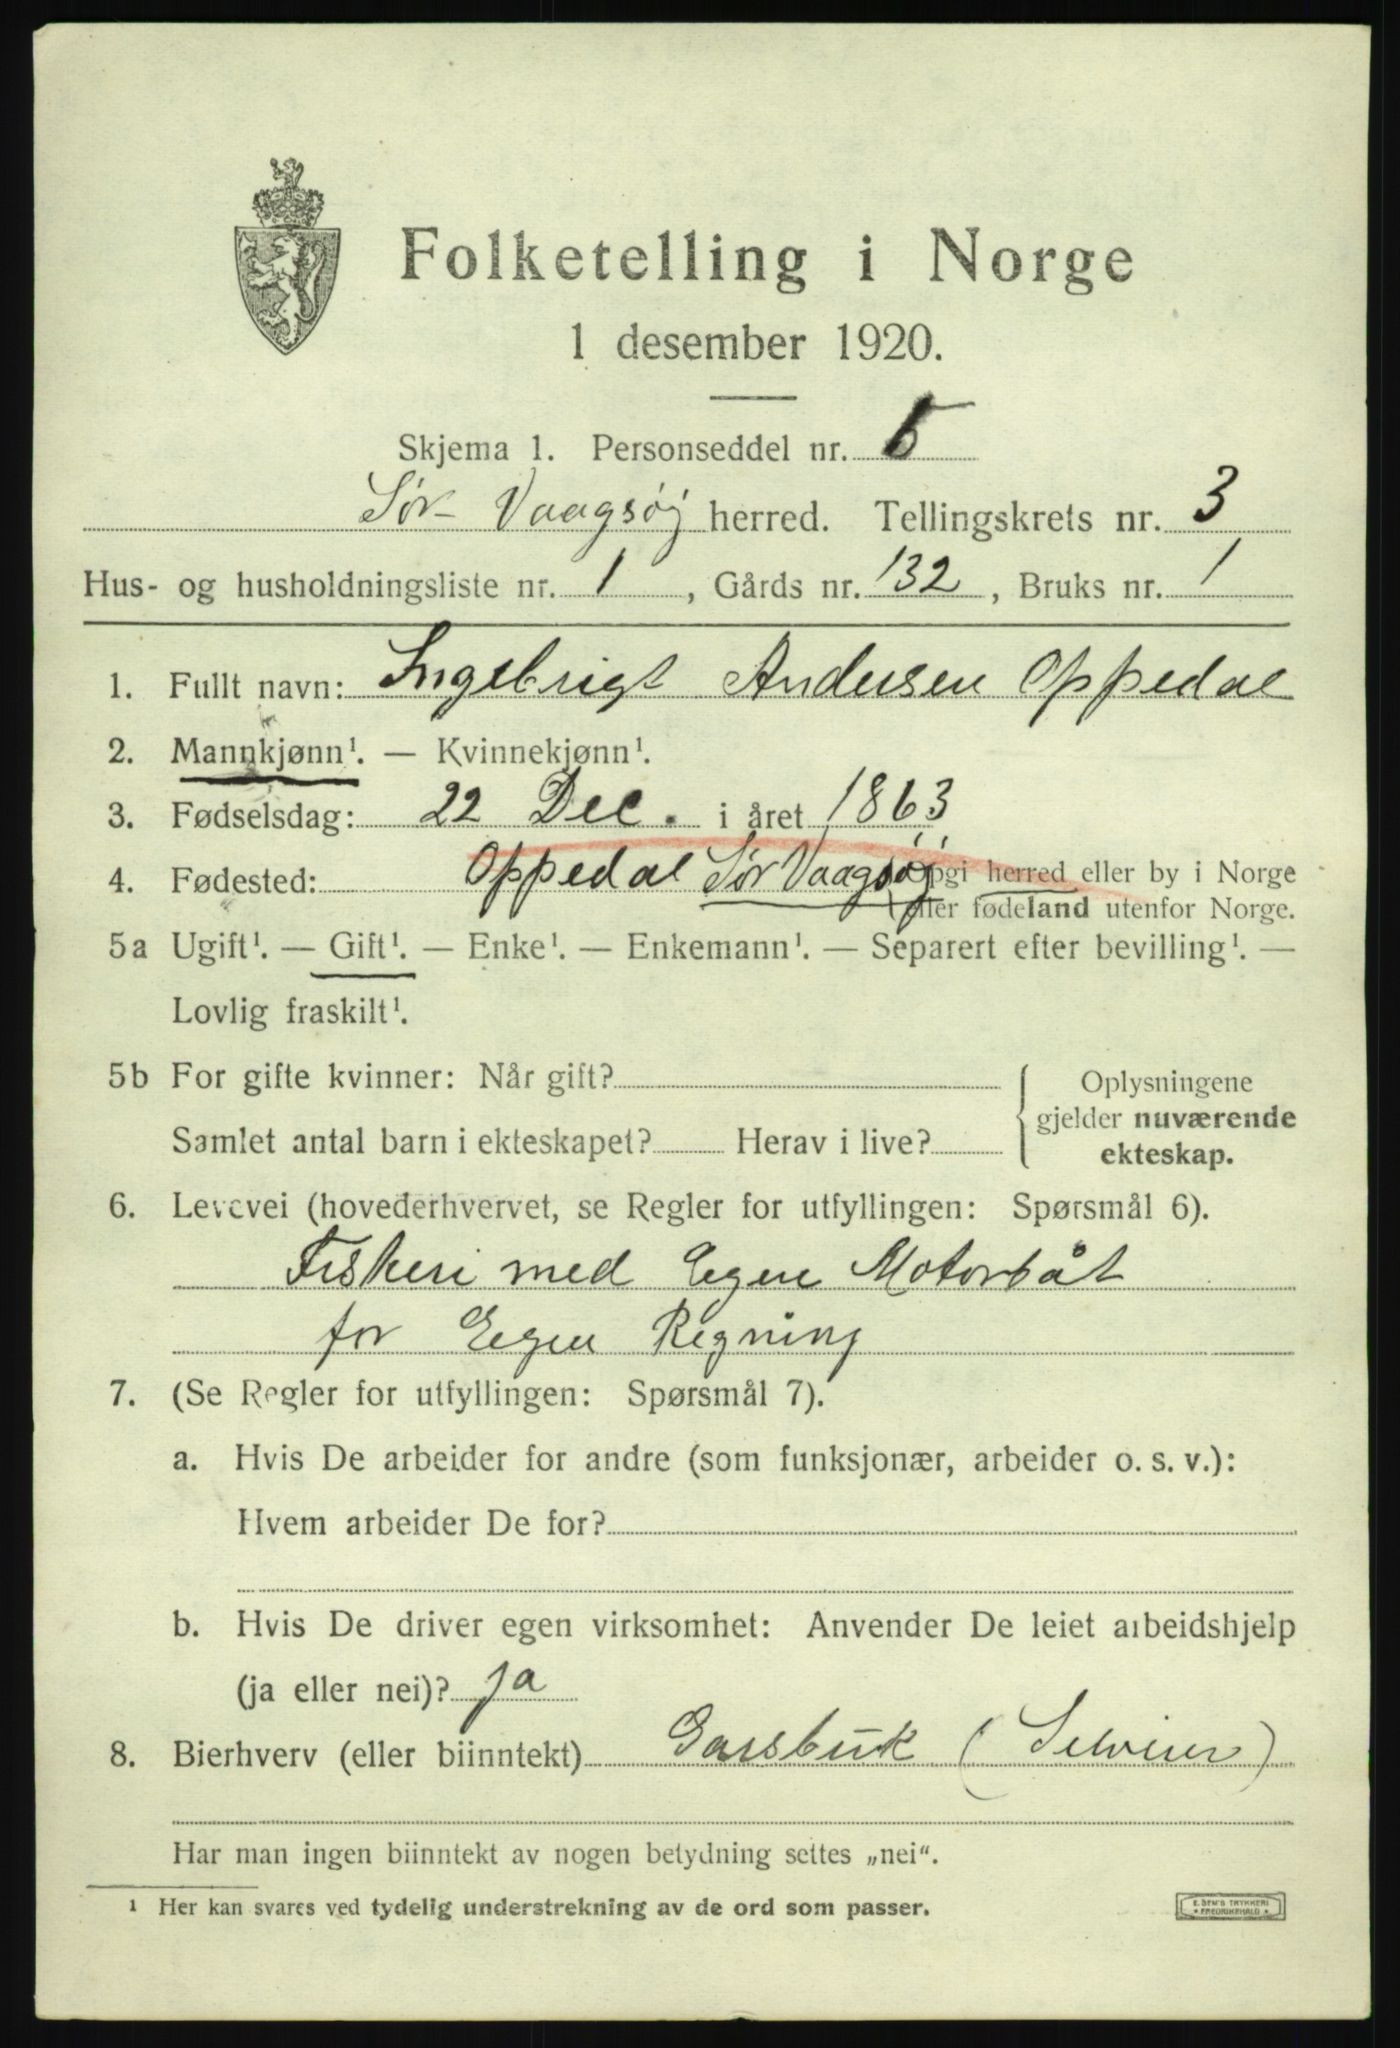 Folketelling i Norge
1 desember 1920.
Skjema 1. Personseddel nr. 5
Sør Vaagsøj herred. Tellingskrets nr. 3
Hus- og husholdningsliste nr. 1, Gårds nr. 132, Bruks nr. 1
1. Fullt navn: Ingebrigt Andersen Oppedal
2. Mannkjønn¹. — Kvinnekjønn¹.
3. Fødselsdag: 22 Dec. i året 1863
4. Fødested: Oppedal Sør Vaagsøj (Opgi herred eller by i Norge
eller fødeland utenfor Norge.
5a Ugift¹. — Gift¹. — Enke¹. — Enkemann¹. — Separert efter bevilling¹. —
Lovlig fraskilt¹.
5b For gifte kvinner: Når gift?
Samlet antal barn i ekteskapet? Herav i live?
Oplysningene
gjelder nuværende
ekteskap.
6. Levevei (hovederhvervet, se Regler for utfyllingen: Spørsmål 6).
Fiskeri med Egen Motorbåt
for Eegen Regning
7. (Se Regler for utfyllingen: Spørsmål 7).
a. Hvis De arbeider for andre (som funksjonær, arbeider o. s. v.):
Hvem arbeider De for?
b. Hvis De driver egen virksomhet: Anvender De leiet arbeidshjelp
(ja eller nei)? ja
8. Bierhverv (eller biinntekt) Garsbruk (Selveier)
Har man ingen biinntekt av nogen betydning settes „nei“.
¹ Her kan svares ved tydelig understrekning av de ord som passer.
E. SEM'S TRYKKERI
FREDRIKSHALD